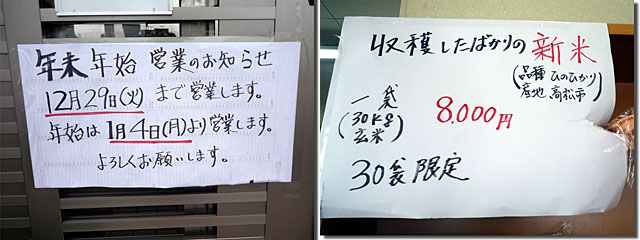 年末年始 営業のお知らせ
12月29日(火)まで営業します。
年始は1月4日(月)より営業します。
よろしくお願いします。
収穫したばかりの新米
(品種 ひのひかり
産地 高松市)
一袋
(30kg
玄米)
8.000円
30袋限定